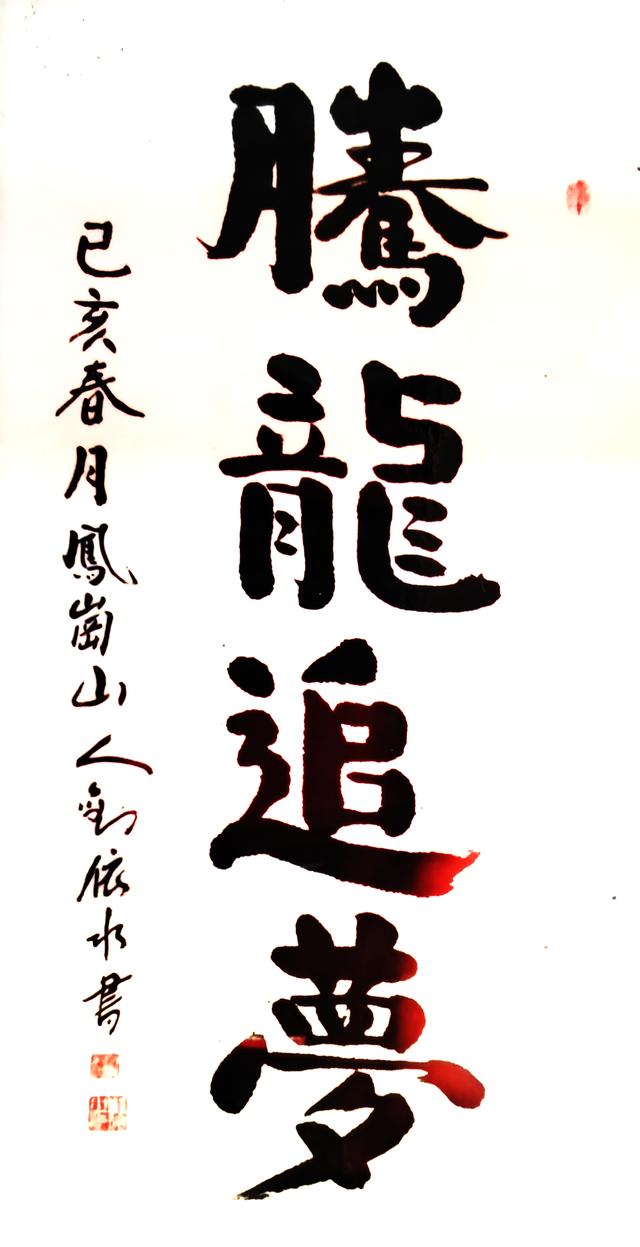 騰龍追夢
己亥春月鳳崗山人劉依水書